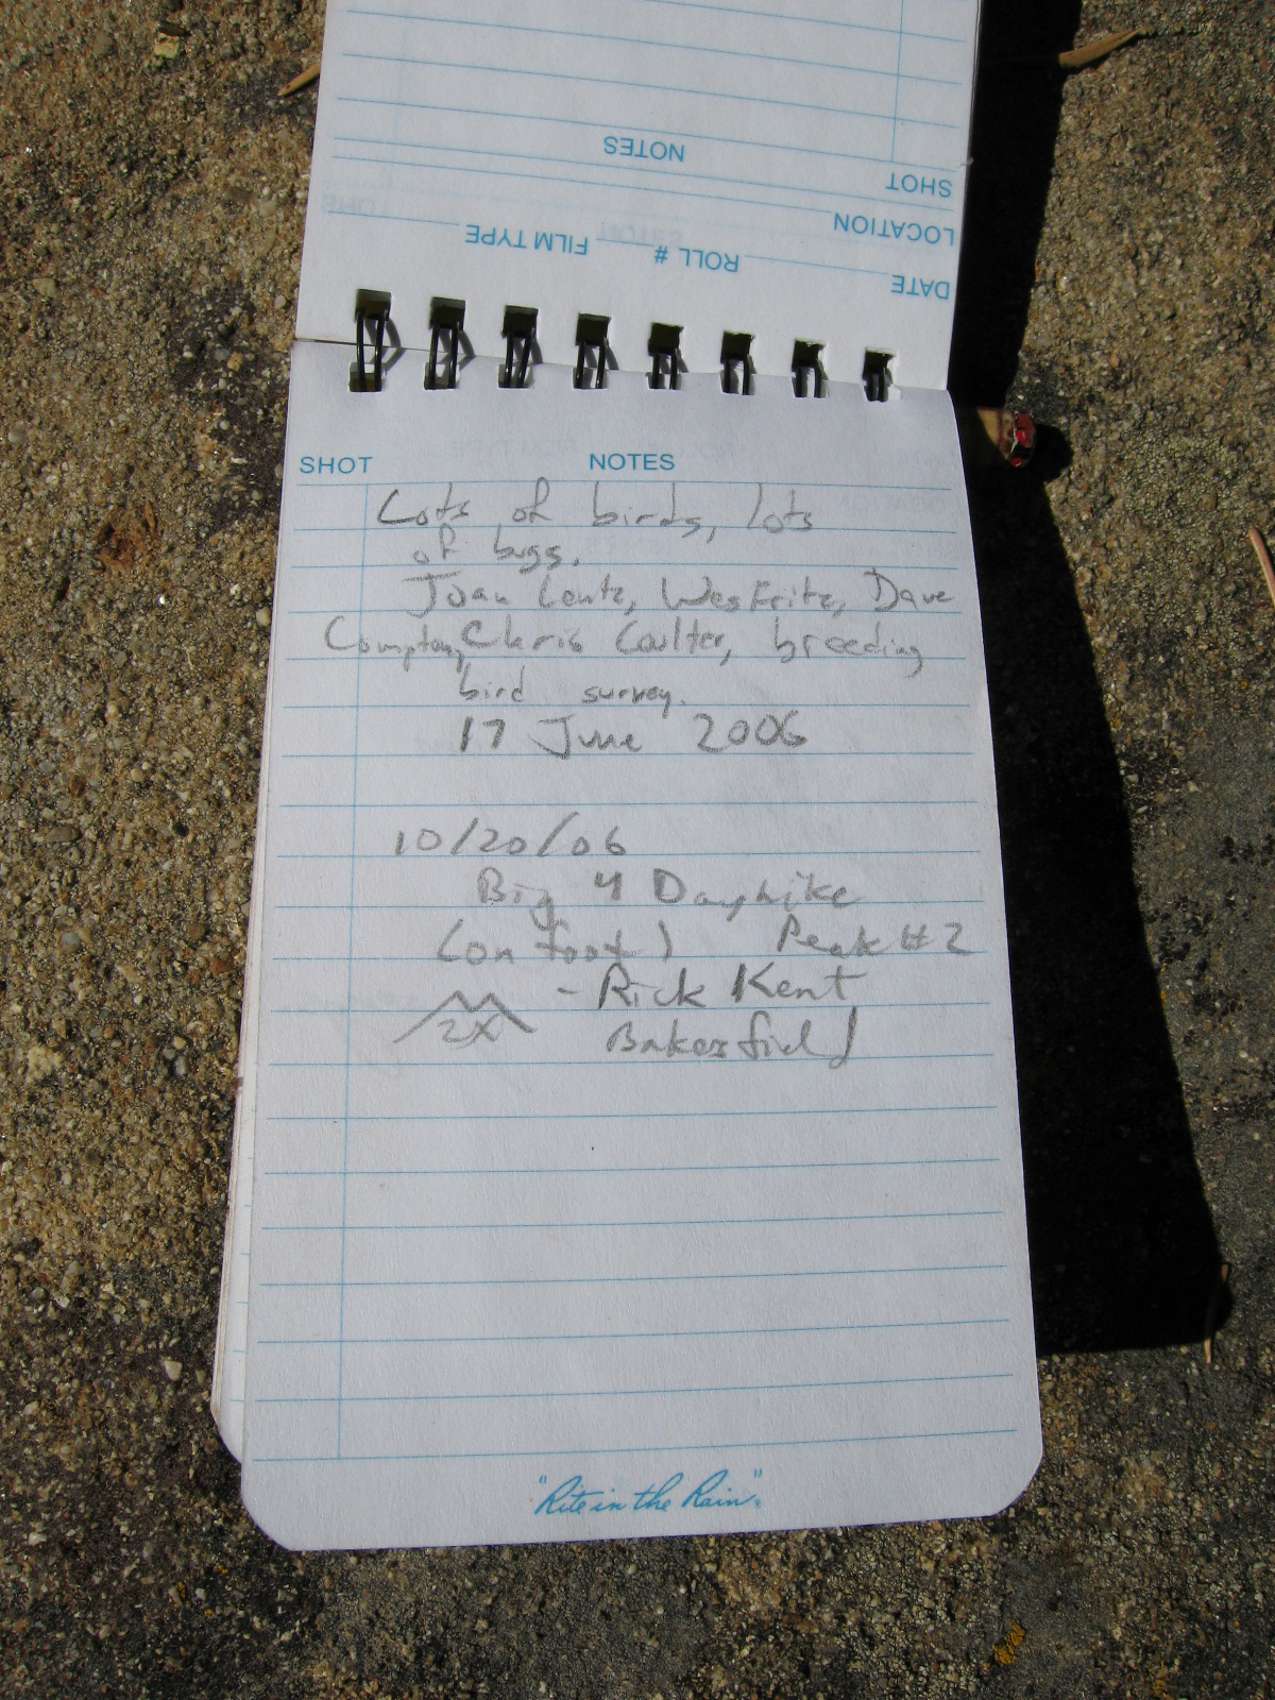 NOTES
SHOT
LOCATION
DATE ROLL # FILM TYPE
SHOT NOTES
Lots of birds, lots
of bugs.
Joan Lentz, Wes Fritz, Dave
Compton, Chris Coulter, breeding
bird survey.
17 June 2006
10/20/06
Big 4 Dayhike
(on foot) Peak #2
- Rick Kent
2X
Bakersfield
"Rite in the Rain".